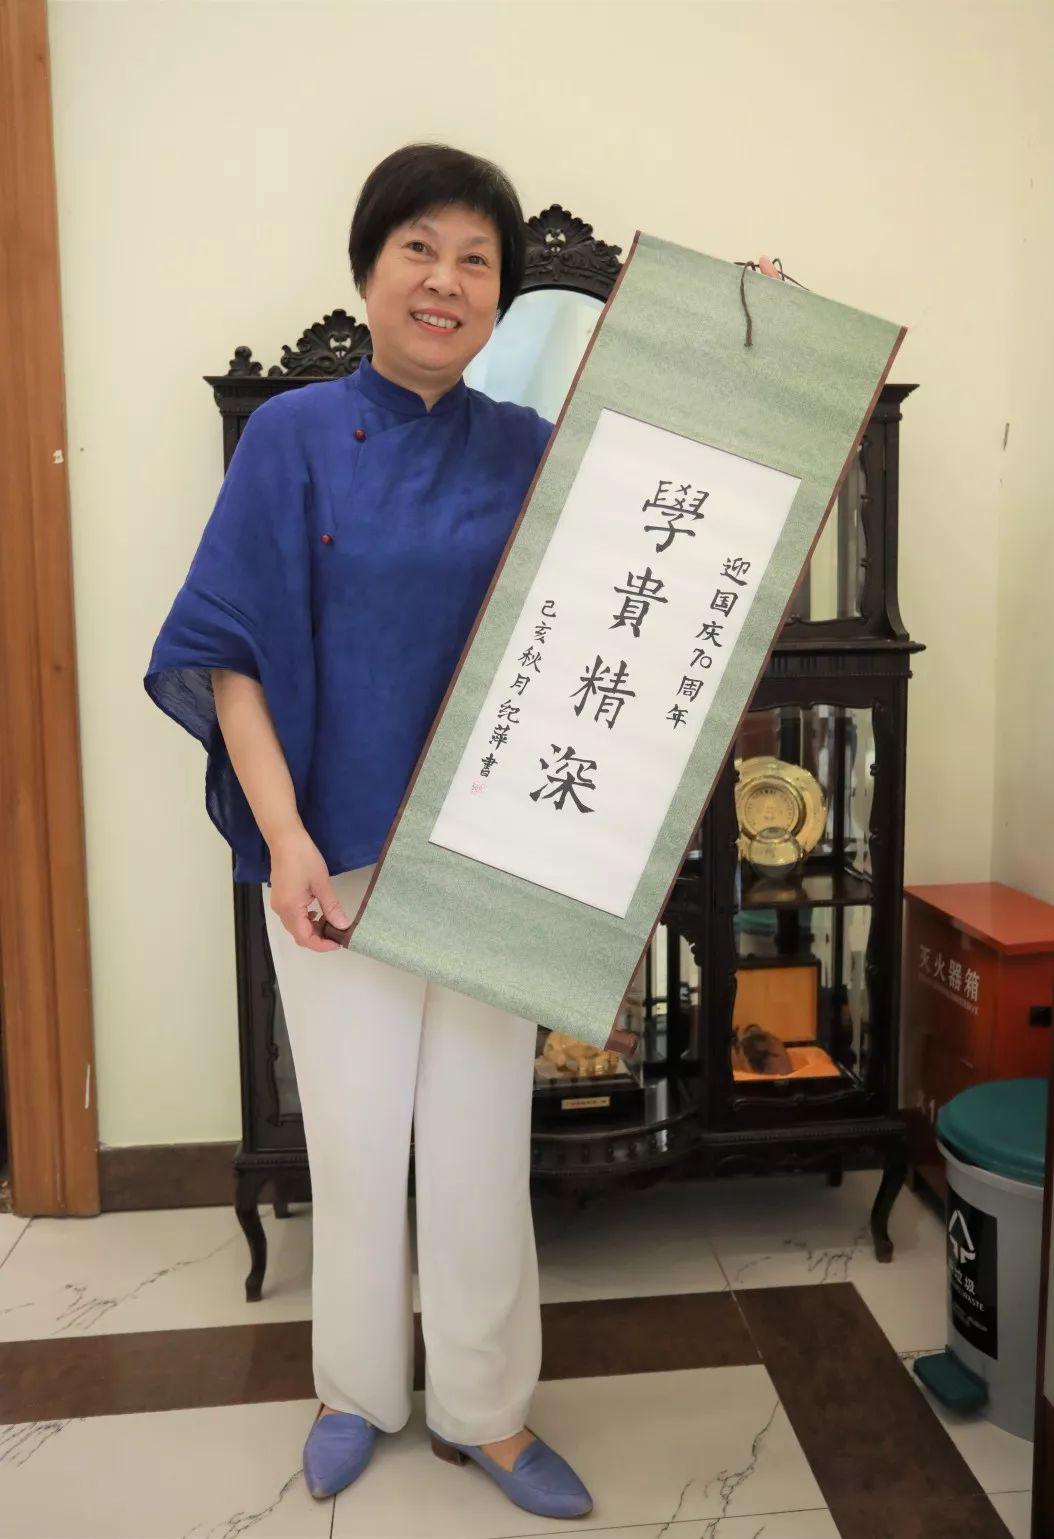 迎国庆70周年
學貴精深
己亥秋月纪萍書
灭火器箱
垃圾